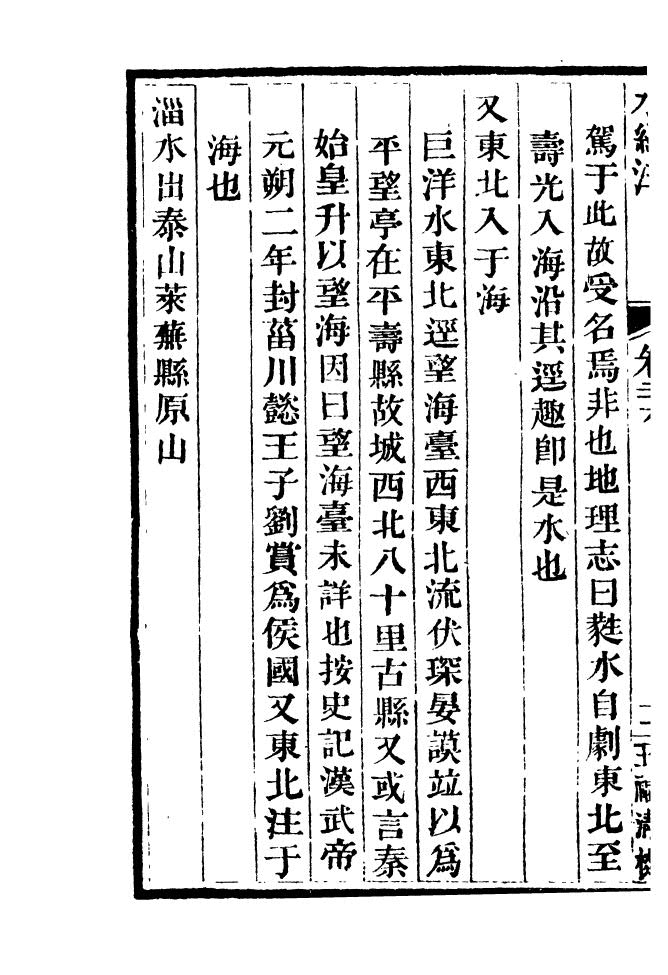 水經注
卷二十六
駕于此故受名焉非也地理志曰蕤水自劇東北至
壽光入海沿其逕趣卽是水也
又東北入于海
巨洋水東北逕望海臺西東北流伏琛晏謨竝以爲
平望亭在平壽縣故城西北八十里古縣又或言秦
始皇升以望海因曰望海臺未詳也按史記漢武帝
元朔二年封菑川懿王子劉賞爲侯國又東北注于
海也
淄水出泰山萊蕪縣原山